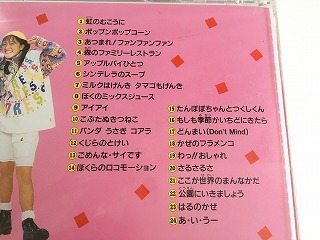 1 虹のむこうに
2 ポップンポップコーン
3 あつまれ!ファンファンファン
4 森のファミリーレストラン
5 アップルパイひとつ
6 シンデレラのスープ
7 ミルクはげんき タマゴもげんき
8 ぼくのミックスジュース
9 アイアイ
10 こぶたぬきつねこ
11 パンダ うさぎ コアラ
12 くじらのとけい
13 ごめんな・サイです
14 ぼくらのロコモーション
15 たんぽぽちゃんとつくしくん
16 もしも季節がいちどにきたら
17 どんまい(Don't Mind)
18 かぜのフラメンコ
19 わっ!おしゃれ
20 さるさるさ
21 ここが世界のまんなかだ
22 公園にいきましょう
23 はるのかぜ
24 あ・い・うー